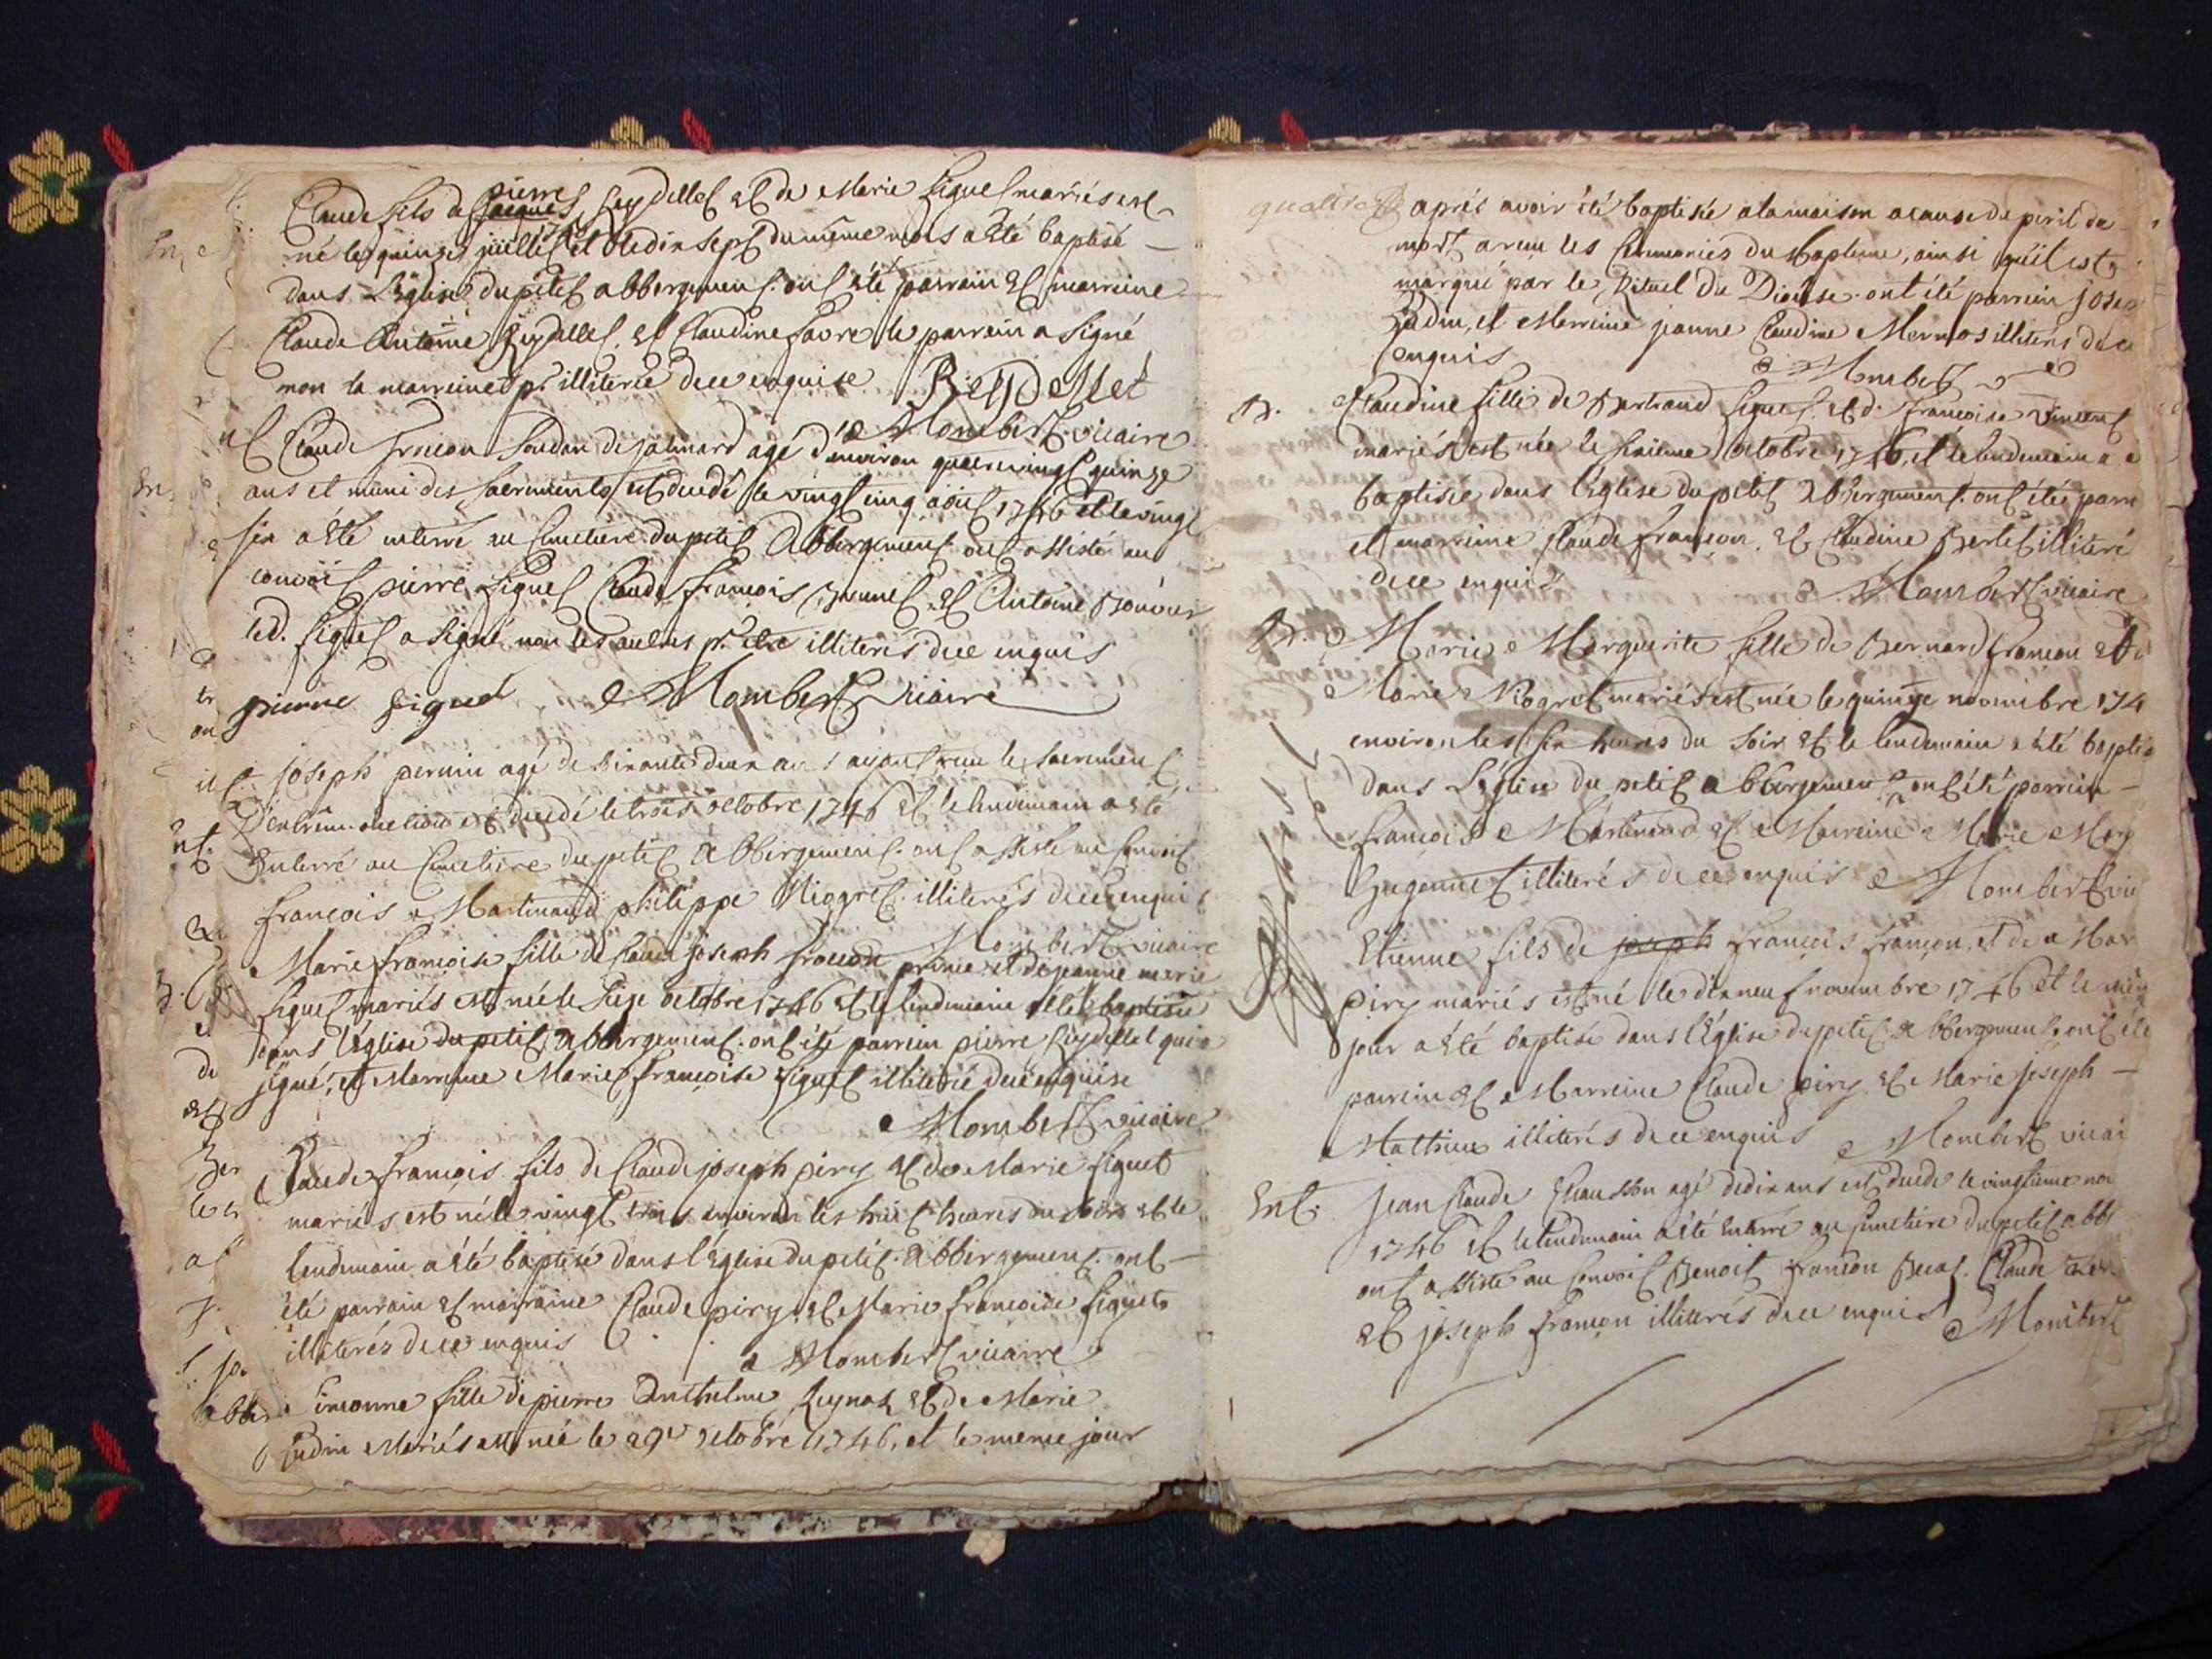 Claude fils de pierre Jacques Reydellet et de Marie Siguet mariés est
né le quinze juillet et le dix sept du même mois a été baptisé
dans L'Eglise du petit abbergement. ont été parrain et marreine
Claude Antoine Reydellet, et Claudine favre le parrein a signé
non la marreine pr illiterée de ce enquise Reydellet
Mombert vicaire
Claude françon Soudan de jalinard agé d'environ quatrevingt quinze
ans et muni des sacrements est decedé le vingt cinq aout 1746 et le vingt
six a été enterré au Cimetiere du petit Abbergement. ont assisté au
convoit pierre Siguet Claude françois Brunet et Antoine Bouvier
led. Siguet a signé non les aultres pr. etre illiterés de ce enquis
pierre siguet Mombert vicaire
joseph perrin agé de soixante deux ans ayant reçu le sacrement
D'extrême onction est decedé le trois octobre 1746 et le lendemain a été
Enterré au Cimetiere du petit Abbergement. ont assisté au Convoit
françois Martinand philippe Niogret. illiterés de ce enquis
Mombert vicaire
Marie françoise fille de Claude joseph françon prince et de jeanne marie
Siguet mariés est née le seize octobre 1746 et le lendemain a été baptisée
dans l'Eglise du petit Abbergement. ont été parrein pierre Reydellet qui a
signé, et Marreine Marie françoise Siguet illiterée de ce enquise
Mombert vicaire
Claude françois fils de Claude joseph piry et de Marie Siguet
mariés est né le vingt trois environ les huit heures du soir et le
lendemain a été baptisé dans l'Eglise du petit Abbergement. ont
été parrain et marraine Claude piry et Marie françoise Siguet
illiterés de ce enquis
Mombert vicaire
fille de pierre Anthelme Reynaz et de Marie
Mariés est née le 29e octobre 1746, et le meme jour
après avoir été baptisée a la maison a cause du peril de
mort a reçu les Ceremonies du Baptême, ainsi qu'il est
marqué par le Rituel Du Diocèse. ont été parrein
et Marreine jeanne Claudine Mermos illiterés de ce
enquis Mombert
B. Claudine fille de Bertrand Siguet et d. françoise Vincent
mariés est née le sixieme octobre 1746, et le lendemain a é
baptisée dans l'Eglise du petit Abbergement. ont été parre
et marreine Claude françon, et Claudine Berlet illiteré
de ce enquis Mombert vicaire
B. Marie Marguerite fille de Bernard françon et d
Marie Niogret mariés est née le quinze novembre 174
environ les six heures du soir et le lendemain a été baptis
dans L'Eglise du petit abbergement ont été parrein
françois Martinand et Marreine Marie
illiterés de ce enquis Mombert vic
Etienne fils de joseph françois françon, et de Mar
piry mariés est né le dix neuf novembre 1746 et le mêm
jour a été baptisé dans l'Eglise du petit abbergement. ont été
parrein et Marreine Claude piry et Marie joseph
Mathieu illiterés de ce enquis Mombert vicai
Ent. jean Claude agé de dix ans est decedé le vingtieme nov
1746 et le lendemain a été enterré au Cimetiere du petit abb
ont assisté au Convoit Benoit françon Claude
et joseph françon illiterés de ce enquis Mombert